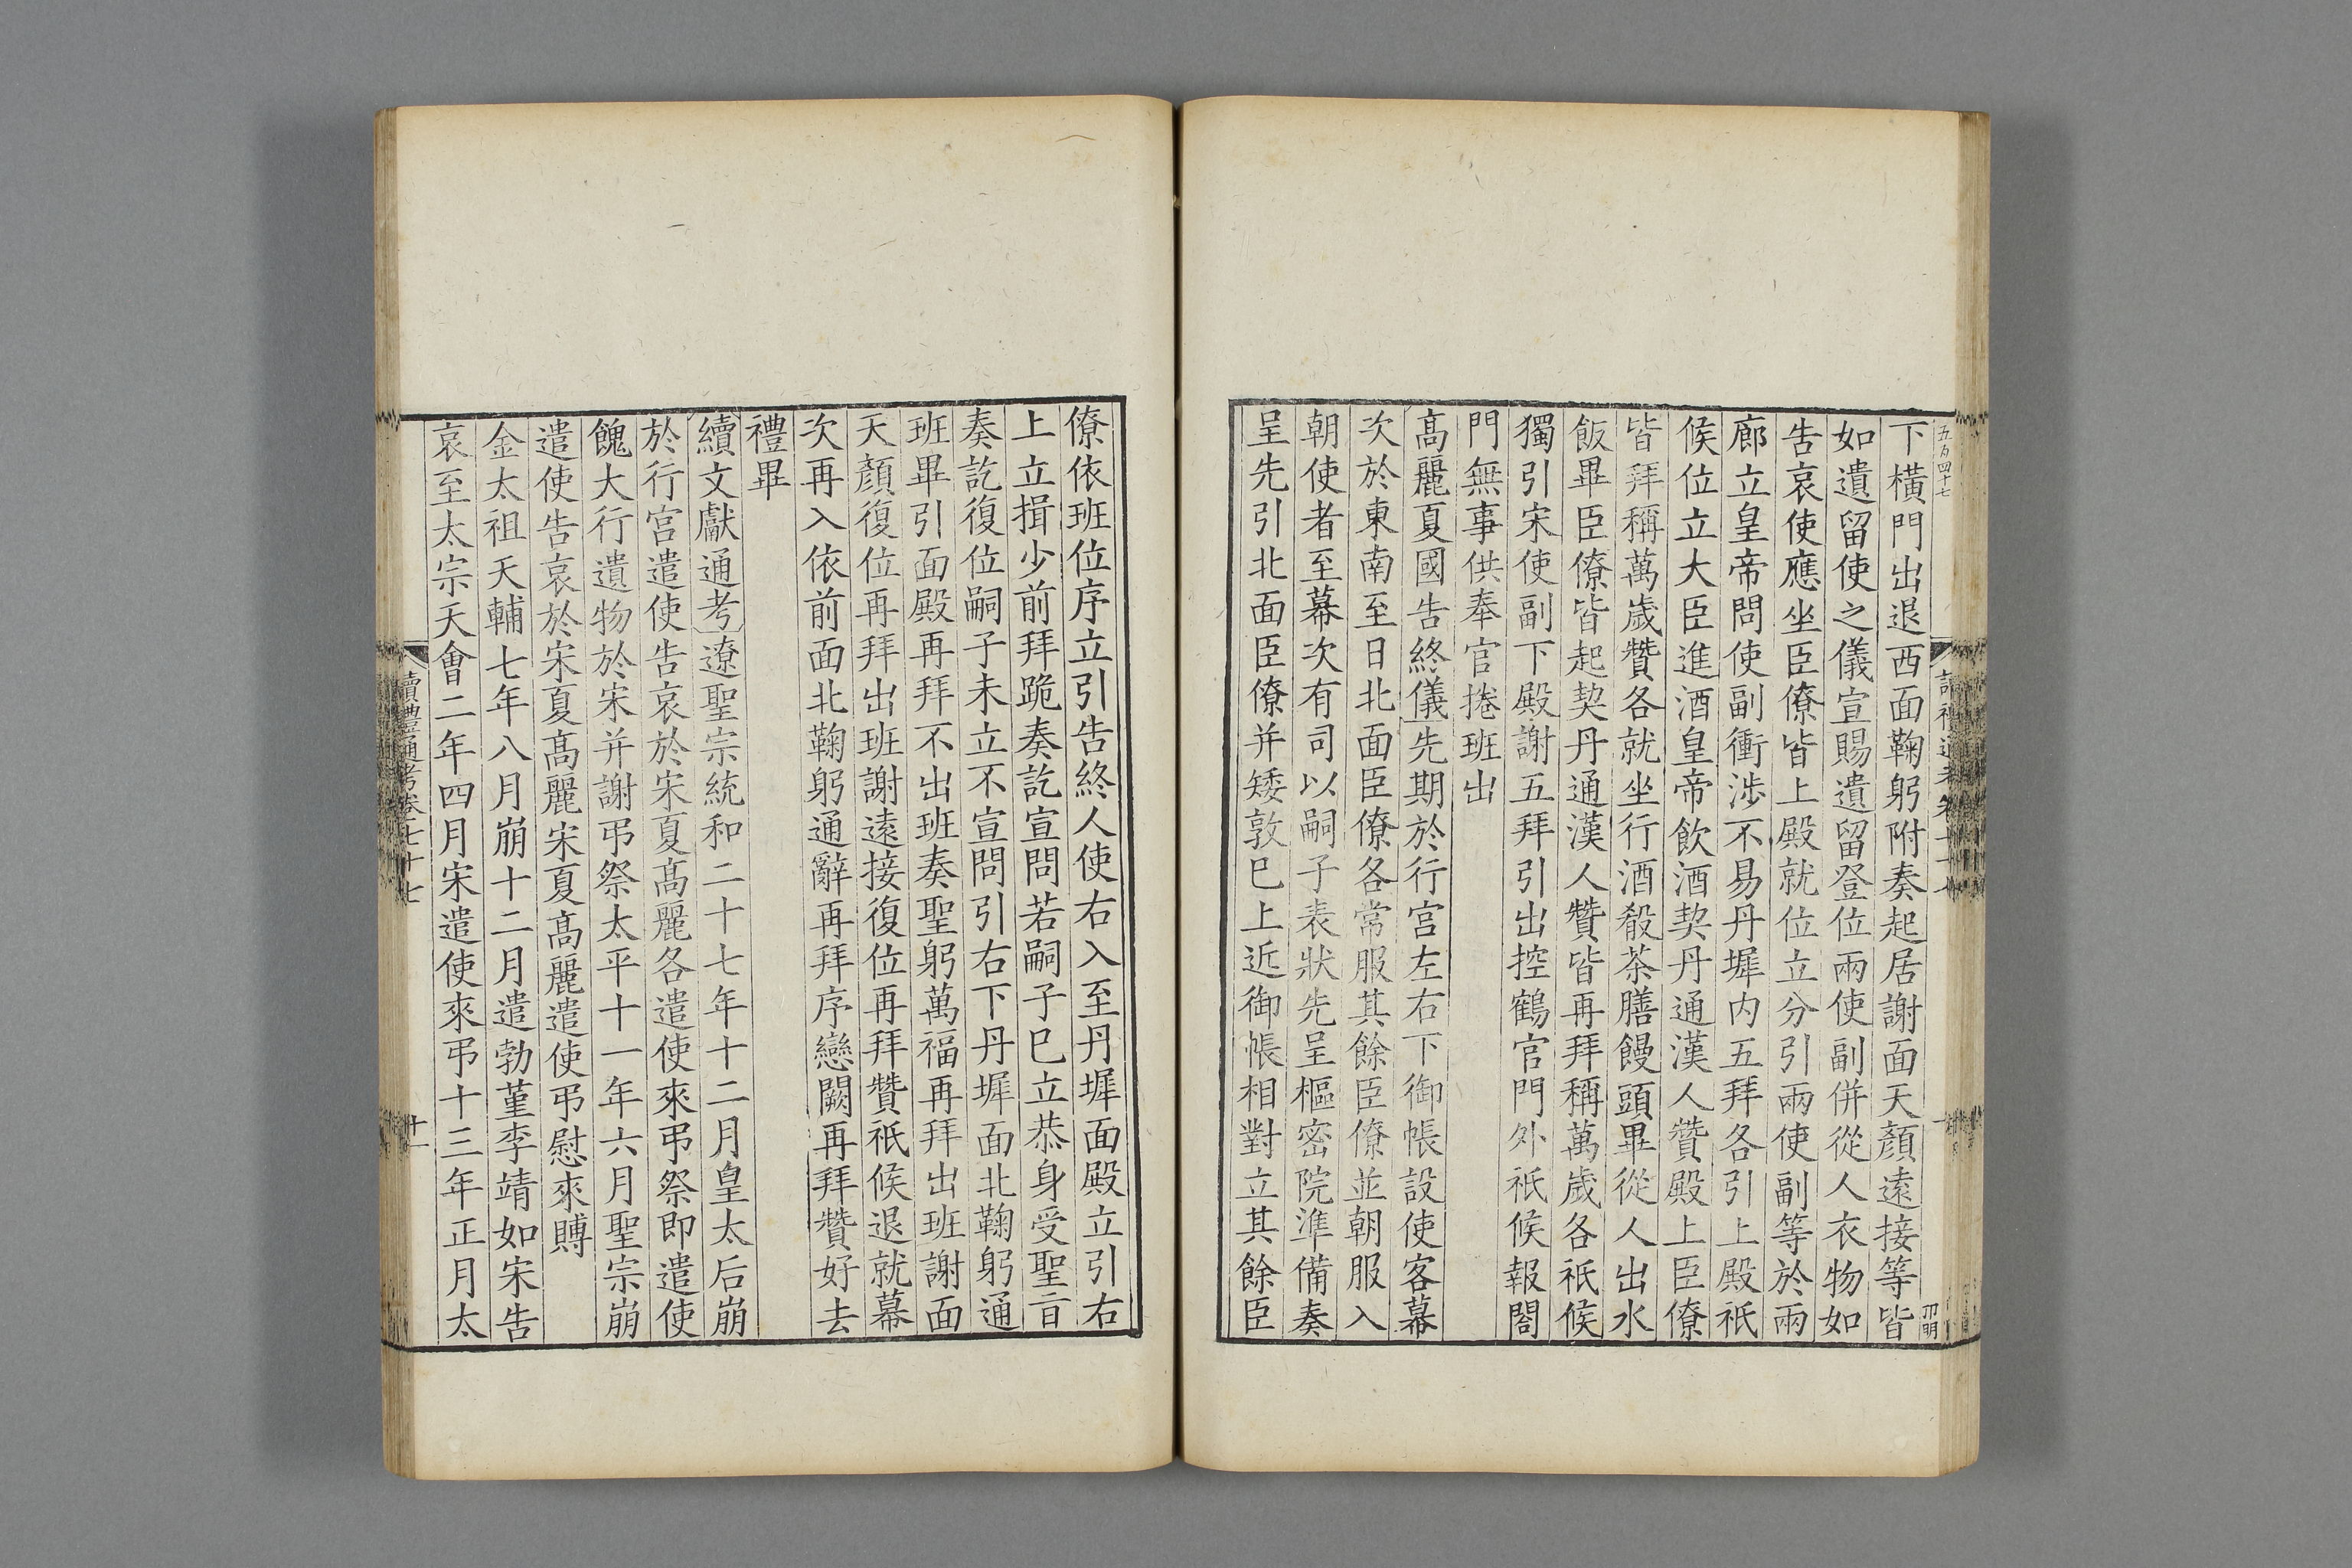 五百四十七
下橫門出退西面鞠躬附奏起居謝面天顏遠接等皆
如遺留使之儀宣賜遺留登位兩使副併從人衣物如
告哀使應坐臣僚皆上殿就位立分引兩使副等於兩
廊立皇帝問使副衝涉不易丹墀内五拜各引上殿祇
候位立大臣進酒皇帝飲酒契丹通漢人贊殿上臣僚
皆拜稱萬歲贊各就坐行酒殽茶膳饅頭畢從人出水
飯畢臣僚皆起契丹通漢人贊皆再拜稱萬歲各祇候
獨引宋使副下殿謝五拜引出控鶴官門外祇候報閤
門無事供奉官捲班出
高麗夏國告終儀先期於行宫左右下御帳設使客幕
次於東南至日北面臣僚各常服其餘臣僚並朝服入
朝使者至幕次有司以嗣子表狀先呈樞密院準備奏
呈先引北面臣僚并矮敦巳上近御帳相對立其餘臣
僚依班位序立引告終人使右入至丹墀面殿立引右
上立揖少前拜跪奏訖宣問若嗣子巳立恭身受聖㫖
奏訖復位嗣子未立不宣問引右下丹墀面北鞠躬通
班畢引面殿再拜不出班奏聖躬萬福再拜出班謝面
天顏復位再拜出班謝遠接復位再拜贊祇候退就幕
次再入依前面北鞠躬通辭再拜序戀闕再拜贊好去
禮畢
續文獻通考遼聖宗統和二十七年十二月皇太后崩
於行宫遣使告哀於宋夏高麗各遣使來弔祭即遣使
餽大行遺物於宋并謝弔祭太平十一年六月聖宗崩
遣使告哀於宋夏高麗宋夏高麗遣使弔慰來賻
金太祖天輔七年八月崩十二月遣勃堇李靖如宋告
哀至太宗天會二年四月宋遣使來弔十三年正月太
讀禮通考卷七十七
十一